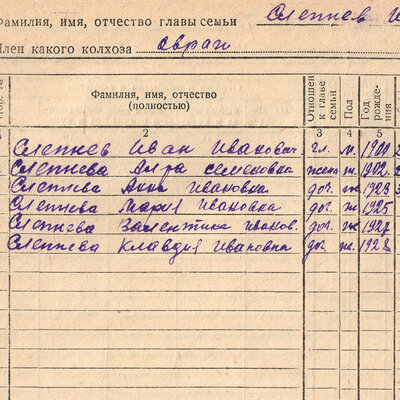 Фамилия, имя, отчество главы семьи Слепнев
Член какого колхоза Овраги
Фамилия, имя, отчество (полностью) Отношен. к главе семьи Пол Год рожде- ния
2 3 4 5
Слепнев Иван Иванович. гл. м. 1900
Слепнева Семеновна жена ж. 1902
Слепнева Анна Ивановка доч. ж 1923
Слепнева Мария Ивановка доч. ж 1925
Слепнева Валентина Иванов. доч. ж
Слепнева Клавдия Ивановна доч. ж. 1928